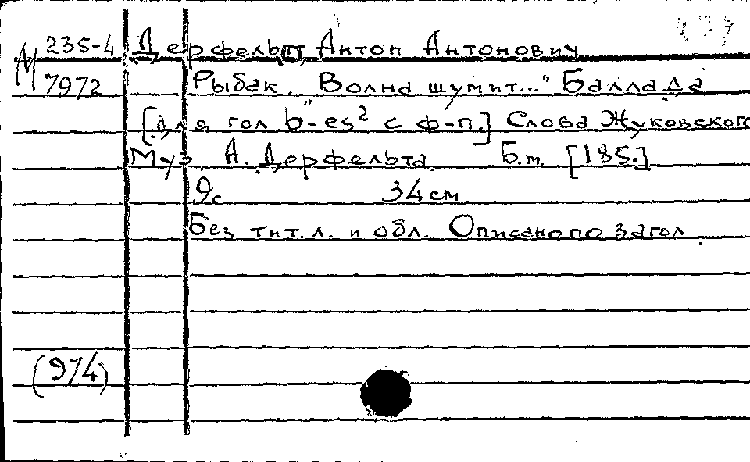 М 235-4 Дерфельдт, Антон Антонович
7972 Рыбак. "Волна шумит..." Баллада
[для гол. b-es² с ф-п.] Слова Жуковского
Муз. А. Дерфельта. Б.m. [185.]
9с 34 см
Без тит. л. и обл. Описано по загол.
(974)